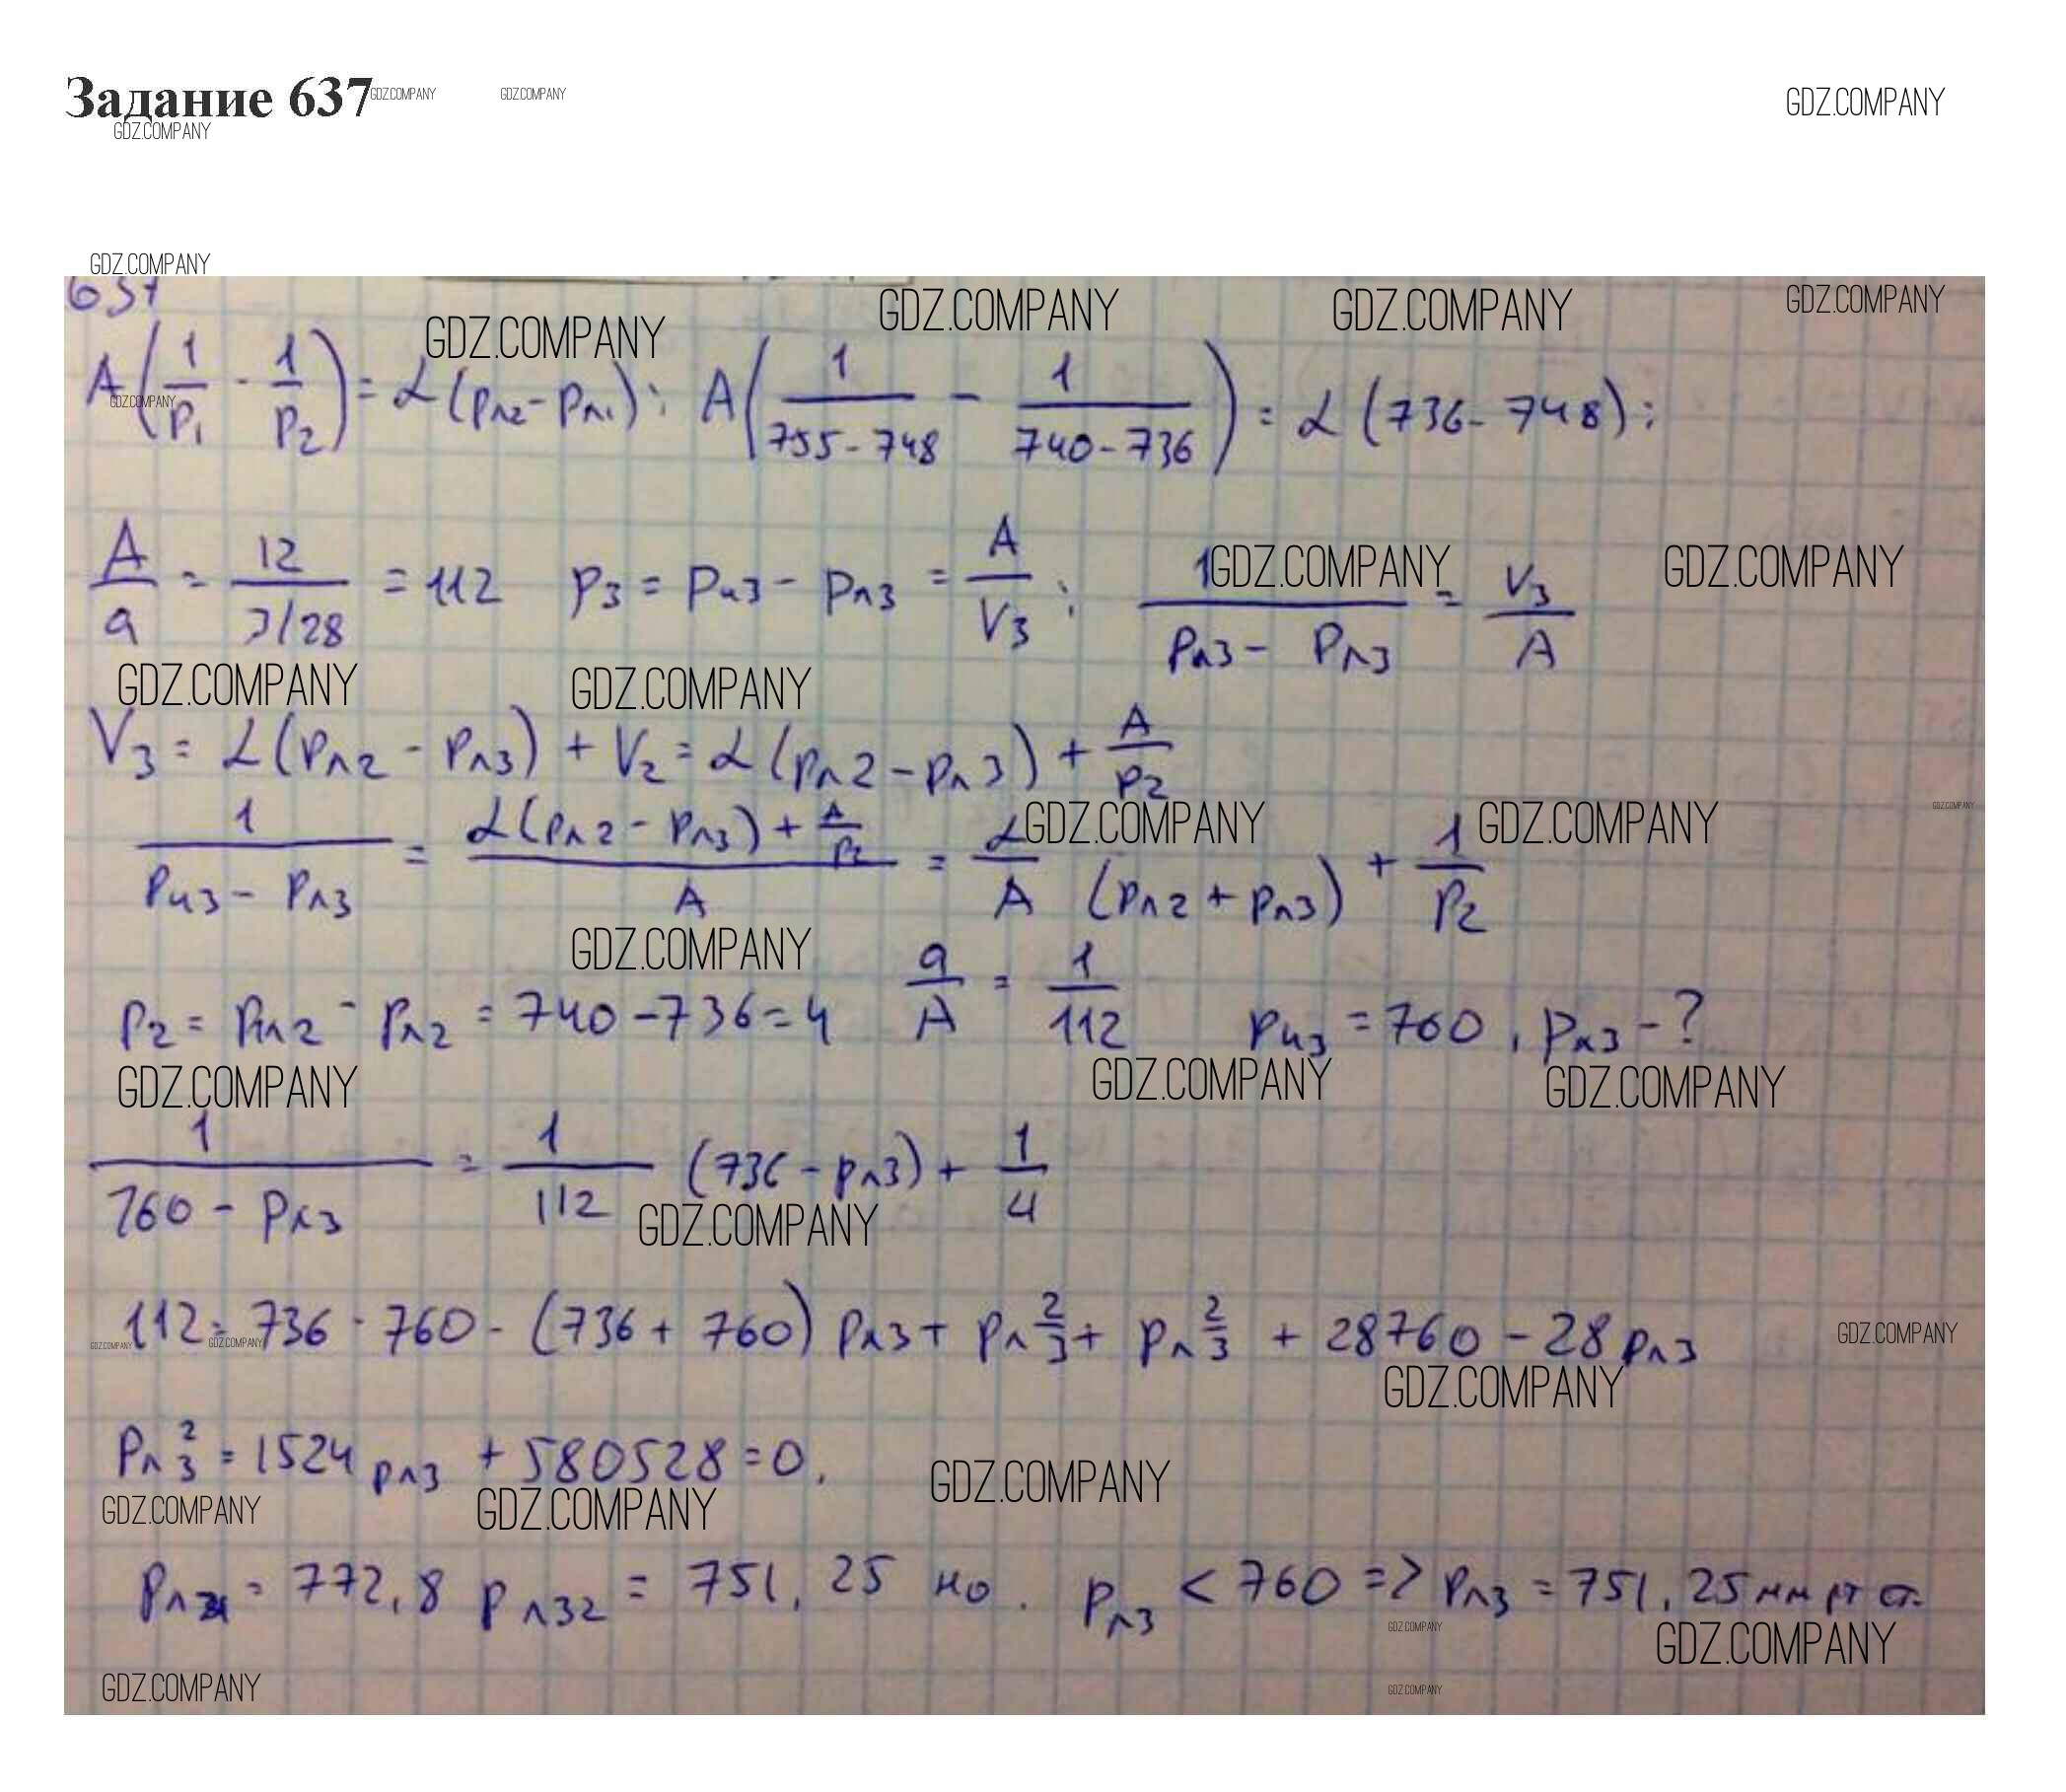 Задание 637
GDZ.COMPANY GDZ.COMPANY GDZ.COMPANY
GDZ.COMPANY
GDZ.COMPANY
637
GDZ.COMPANY GDZ.COMPANY GDZ.COMPANY GDZ.COMPANY
A(1/p₁ - 1/p₂) = α(pл2 - pл1); A(1/(755-748) - 1/(740-736)) = α(736-748);
GDZ.COMPANY
A/a = 12/(3/28) = 112 p₃ = pи3 - pл3 = A/V₃; 1/(pл3 - pл3) = V₃/A
GDZ.COMPANY GDZ.COMPANY
GDZ.COMPANY GDZ.COMPANY
V₃ = α(pл2 - pл3) + V₂ = α(pл2 - pл3) + A/p₂
GDZ.COMPANY GDZ.COMPANY GDZ.COMPANY
1/(pи3 - pл3) = (α(pл2 - pл3) + A/p₂)/A = α/A (pл2 + pл3) + 1/p₂
GDZ.COMPANY
p₂ = pп2 - pл2 = 740-736=4 a/A = 1/112 pи3 = 760, pл3 - ?
GDZ.COMPANY GDZ.COMPANY GDZ.COMPANY
1/(760 - pл3) = 1/112 (736 - pл3) + 1/4
GDZ.COMPANY
112 = 736 · 760 - (736 + 760) pл3 + pл²₃ + pл²₃ + 28760 - 28pл3
GDZ.COMPANY GDZ.COMPANY GDZ.COMPANY
GDZ.COMPANY
pл²₃ = 1524 pл3 + 580528 = 0.
GDZ.COMPANY
GDZ.COMPANY GDZ.COMPANY
pл31 = 772,8 pл32 = 751,25 но. pл3 < 760 => pл3 = 751,25 мм рт ст.
GDZ.COMPANY
GDZ.COMPANY
GDZ.COMPANY GDZ.COMPANY